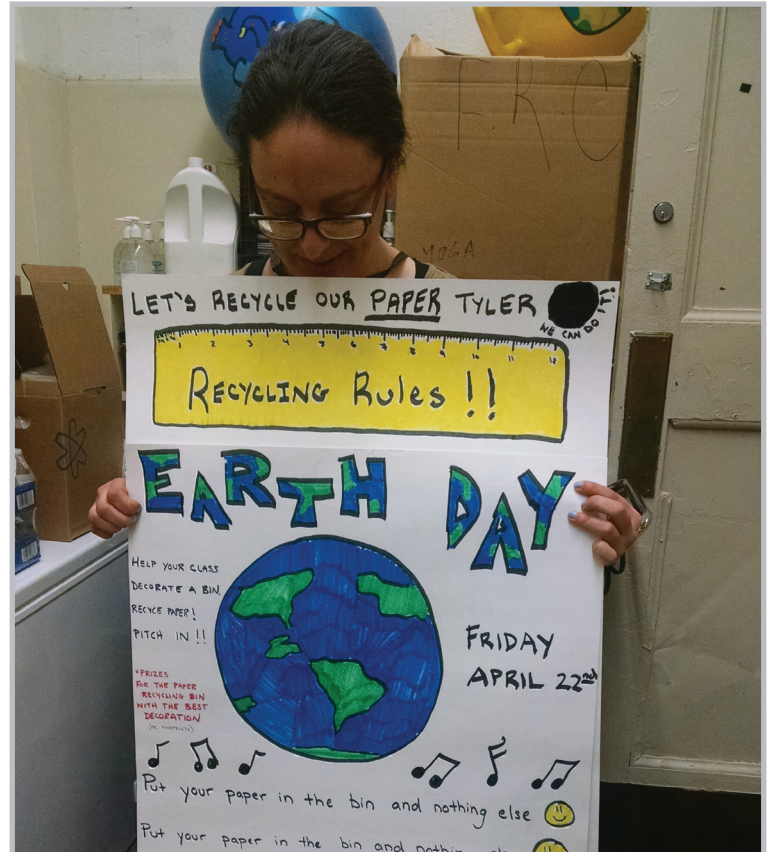 F.R.C
YOGA
LET'S RECYCLE OUR PAPER TYLER
WE CAN DO IT!
1 2 3 4 5 6 7 8 9 10 11 12
RECYCLING Rules!!
EARTH DAY
HELP YOUR CLASS
DECORATE A BIN.
RECYCE PAPER!
PITCH IN!!
FRIDAY
APRIL 22nd
*PRIZES
FOR THE PAPER
RECYCLING BIN
WITH THE BEST
DECORATION
Put your paper in the bin and nothing else
Put your paper in the bin and nothing else